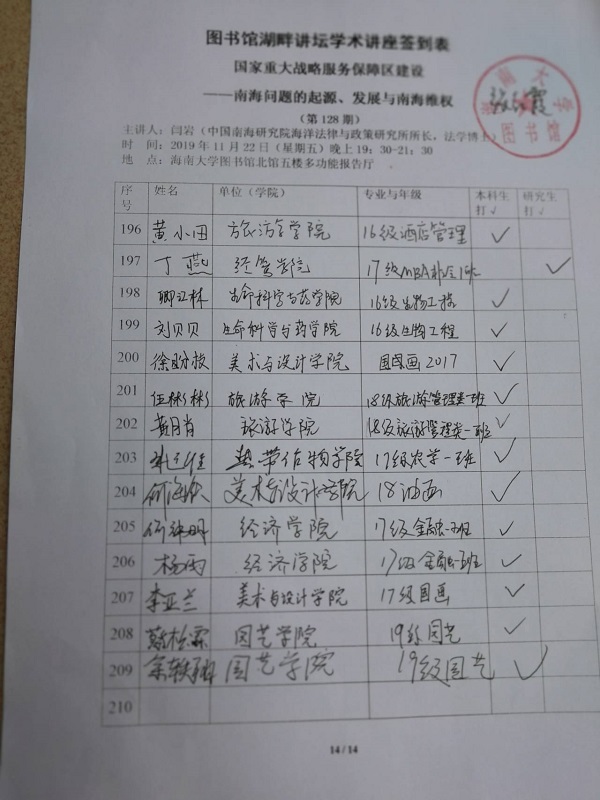 图书馆湖畔讲坛学术讲座签到表
国家重大战略服务保障区建设
——南海问题的起源、发展与南海维权
（第 128 期）
海南大学
图书馆
主讲人：闫岩（中国南海研究院海洋法律与政策研究所所长，法学博士）
时 间：2019 年 11 月 22 日（星期五）晚上 19：30-21：30
地 点：海南大学图书馆北馆五楼多功能报告厅
序号 姓名 单位（学院） 专业与年级 本科生打√ 研究生打√
196 黄小田 旅游学院 16级酒店管理 ✓
197 丁燕 经管学院 17级MBA ✓
198 江林 生命科学与药学院 16级生物工程 ✓
199 刘贝贝 生命科学与药学院 16级生物工程 ✓
200 徐 美术与设计学院 国画 2017 ✓
201 伍彬彬 旅游学院 18级旅游管理类一班 ✓
202 黄月肖 旅游学院 18级旅游管理类一班 ✓
203 热带作物学院 17级农学一班 ✓
204 何海 美术与设计学院 18油画 ✓
205 何 经济学院 17级金融一班 ✓
206 杨雨 经济学院 17级金融一班 ✓
207 李亚兰 美术与设计学院 17级国画 ✓
208 园艺学院 19级园艺 ✓
209 园艺学院 19级园艺 ✓
210
14 / 14